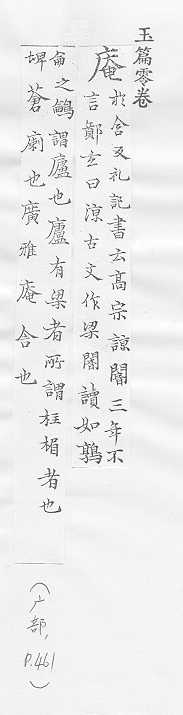 玉篇零卷
庵 於含反礼記書云高宗諒闇三年不
言鄭玄曰諒古文作梁闇讀如鶉
䳺之䳺謂廬也廬有梁者所謂柱楣者也
埤蒼廟也廣雅庵舍也
(广部, P.461)